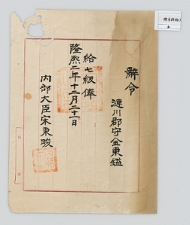 辭令
漣川郡守金東鎰
給七級俸
隆熙二年十二月二十一日
內部大臣宋秉畯